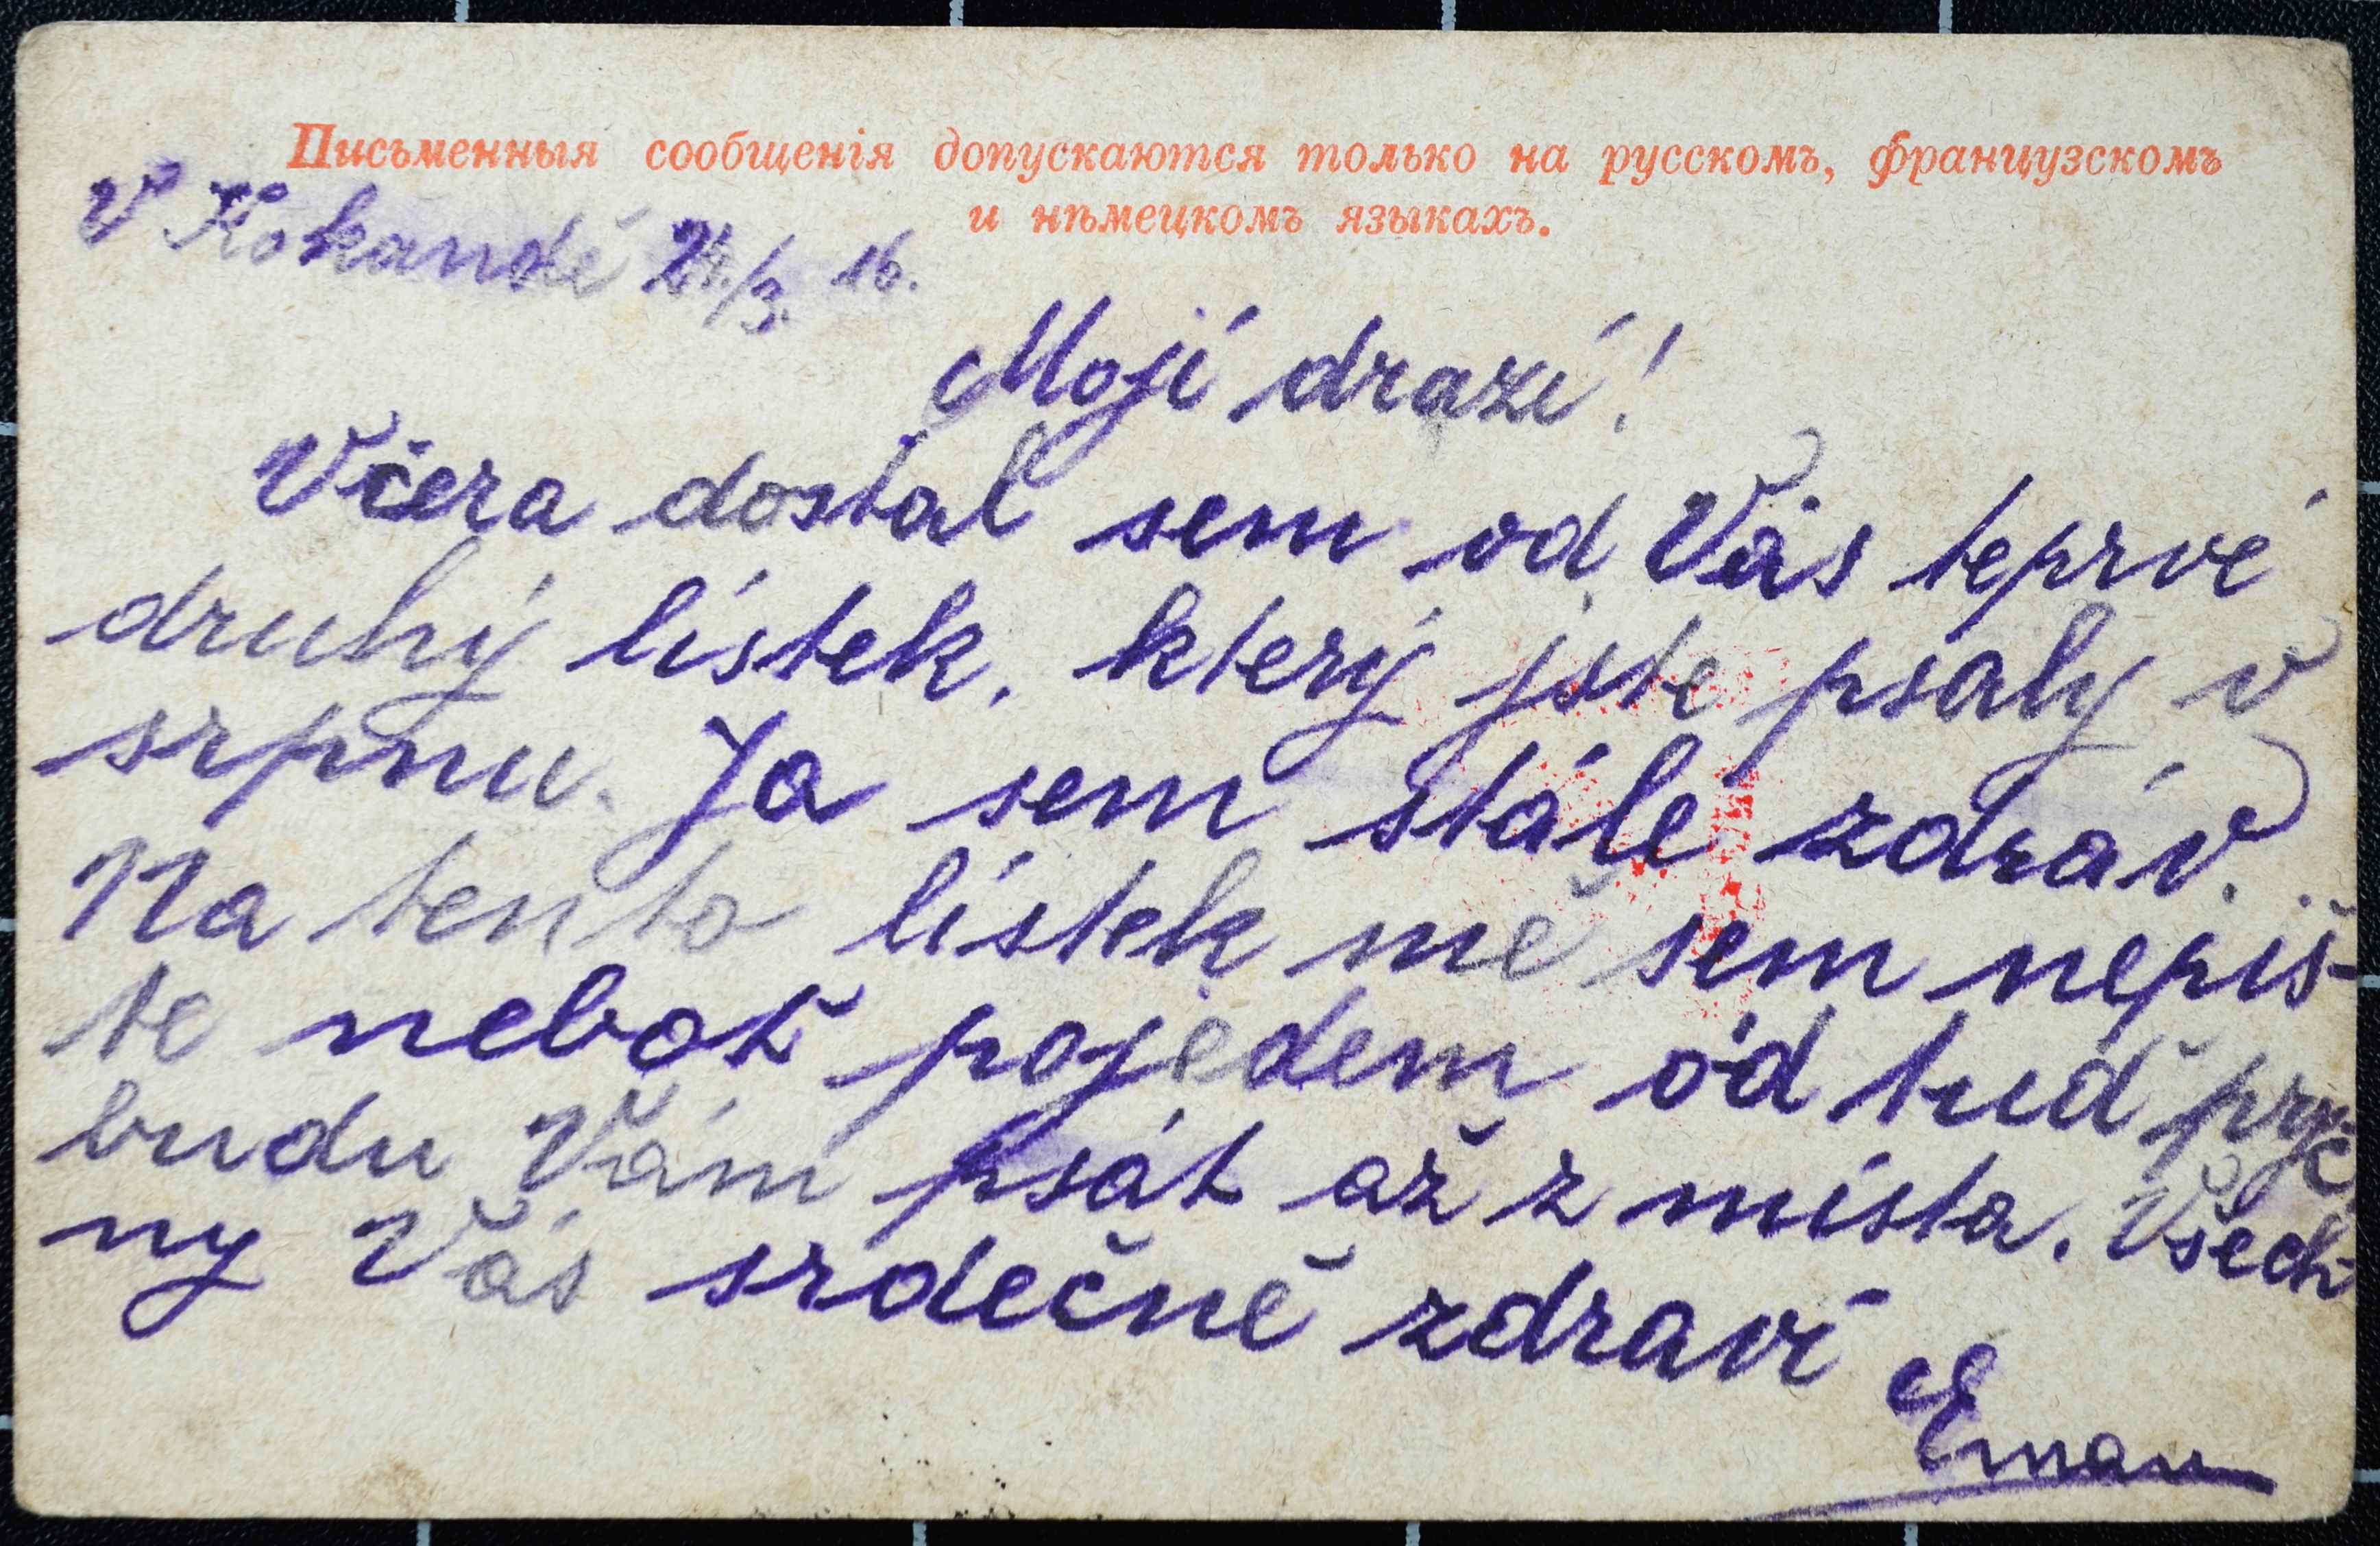 Письменныя сообщенія допускаются только на русскомъ, французскомъ
и нѣмецкомъ языкахъ.
V Kokandě 24./3. 16.
Mojí drazí!
Včera dostal sem od Vás teprvé
druhý lístek, který jste psaly v
srpnu. Ja sem stále zdráv.
Na tento lístek mě sem nepiš-
te neboť pojedem od tud pryč,
budu Vám psát až z místa. Všech-
ny Vás srdečně zdraví
Eman